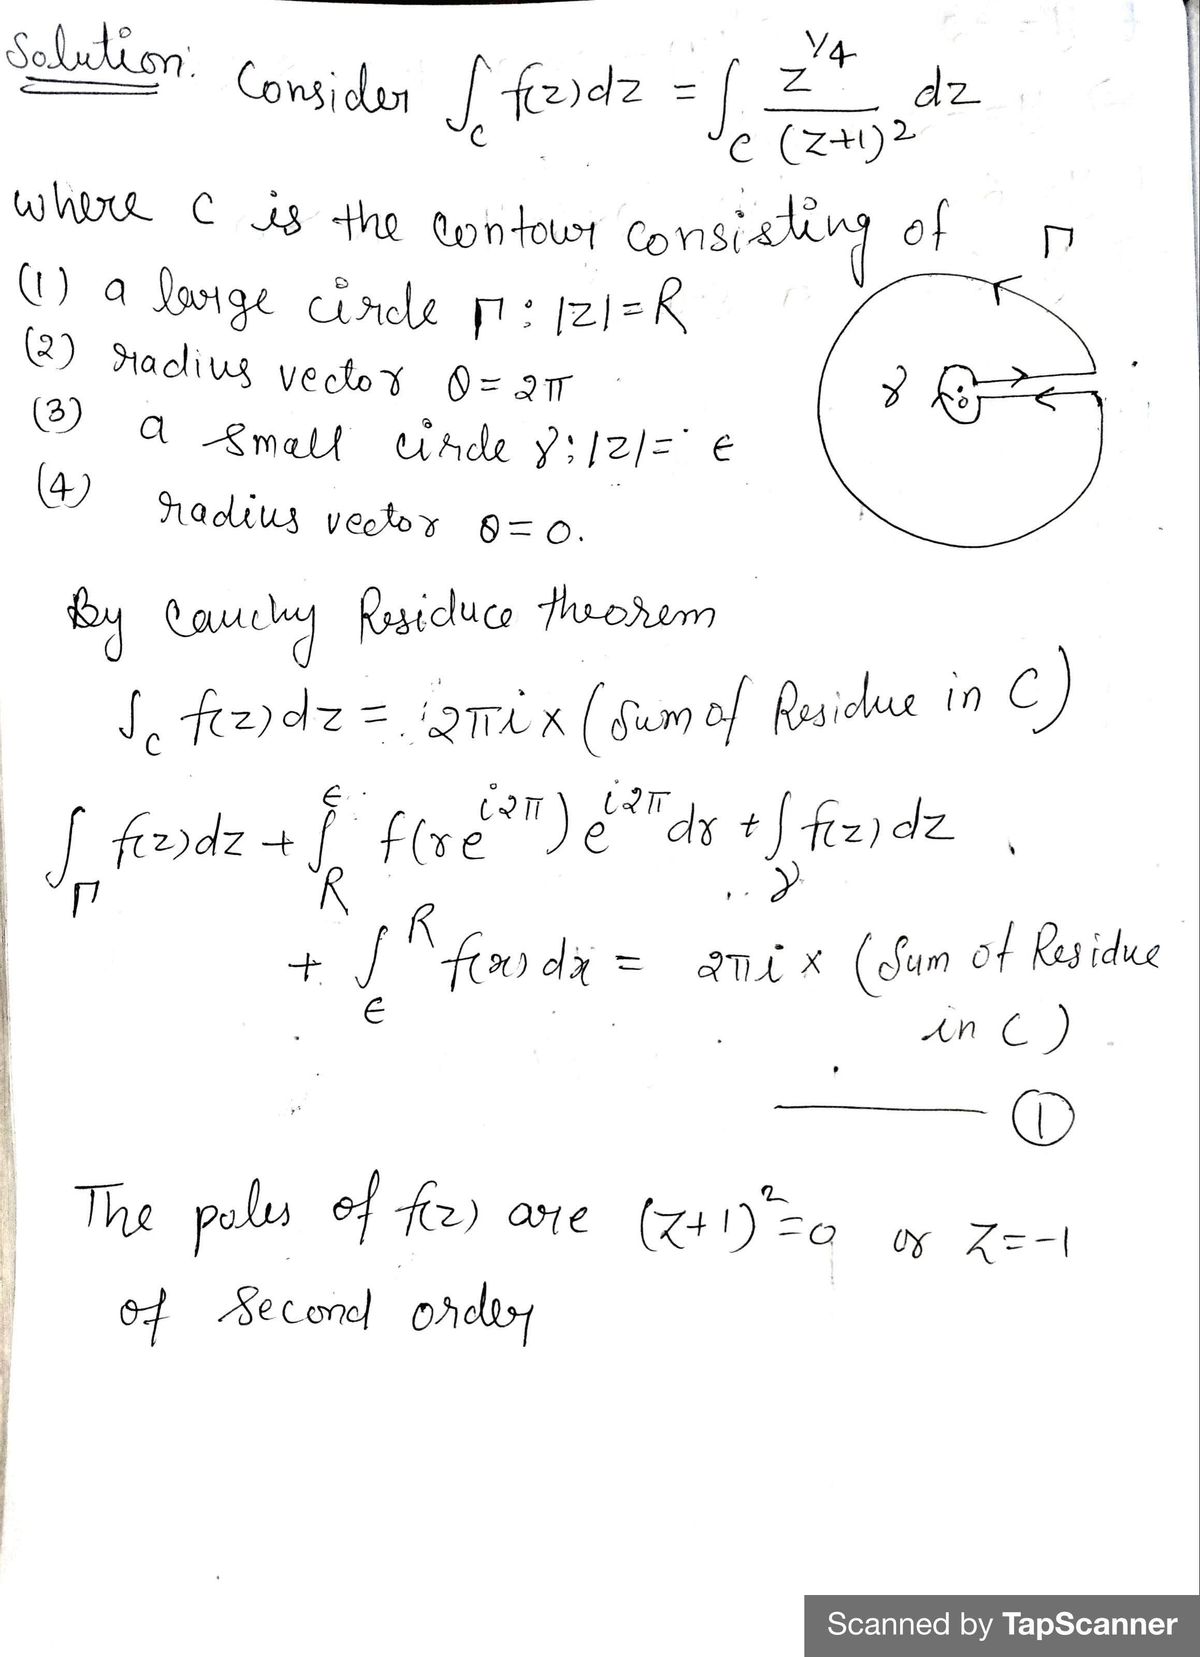 Solution: Consider ∫_C f(z)dz = ∫_C z^{1/4}/(z+1)^2 dz
where C is the contour consisting of
(1) a large circle Γ : |z| = R
(2) radius vector θ = 2π
(3) a small circle γ : |z| = ϵ
(4) radius vector θ = 0.
Γ
γ
0
By Cauchy Residuce theorem
∫_C f(z)dz = 2πi × (Sum of Residue in C)
∫_Γ f(z)dz + ∫_R^ϵ f(re^{i2π}) e^{i2π} dr + ∫_γ f(z)dz
+ ∫_ϵ^R f(x)dx = 2πi × (Sum of Residue
in C)
——— ①
The poles of f(z) are (z+1)^2 = 0 or z = -1
of second order
Scanned by TapScanner